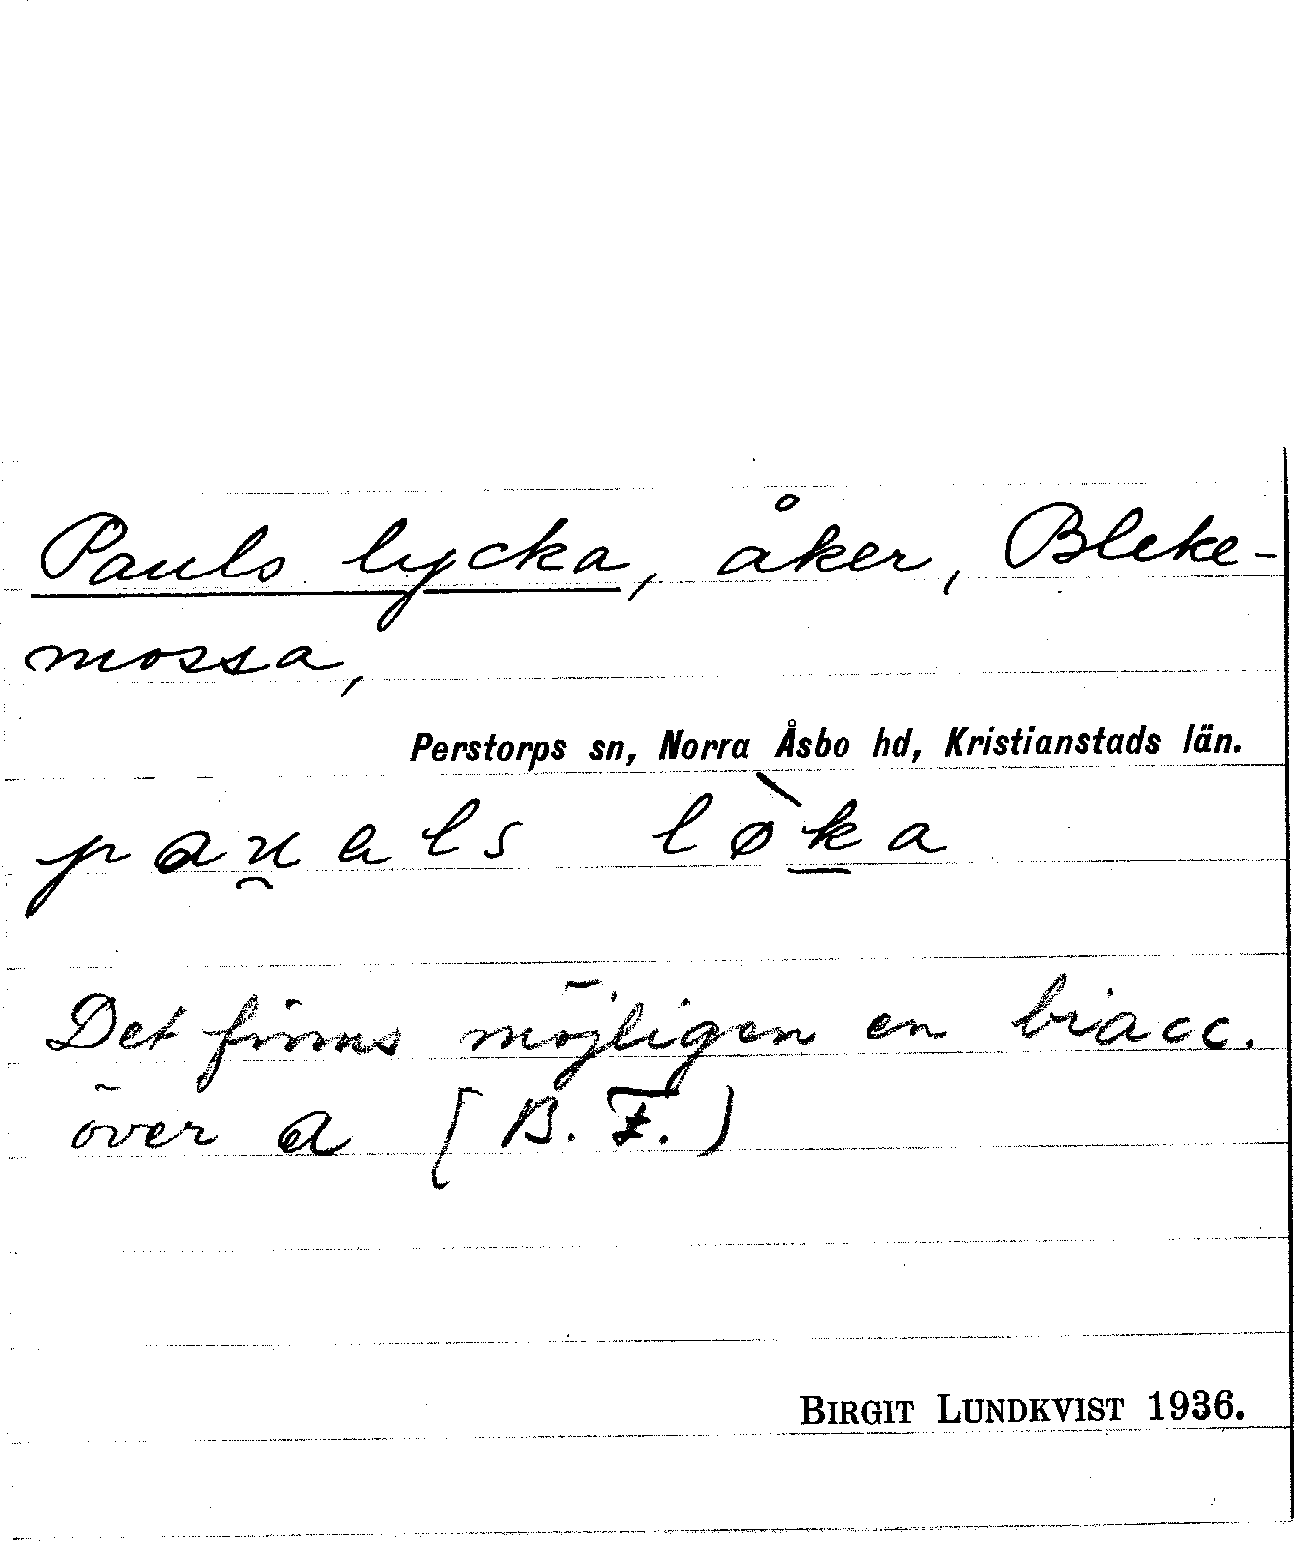 Pauls lycka, åker, Bleke-
mossa,
Perstorps sn, Norra Åsbo hd, Kristianstads län.
pau̯als løk̲a
Det finns möjligen en biacc.
över a (B. F.)
BIRGIT LUNDKVIST 1936.